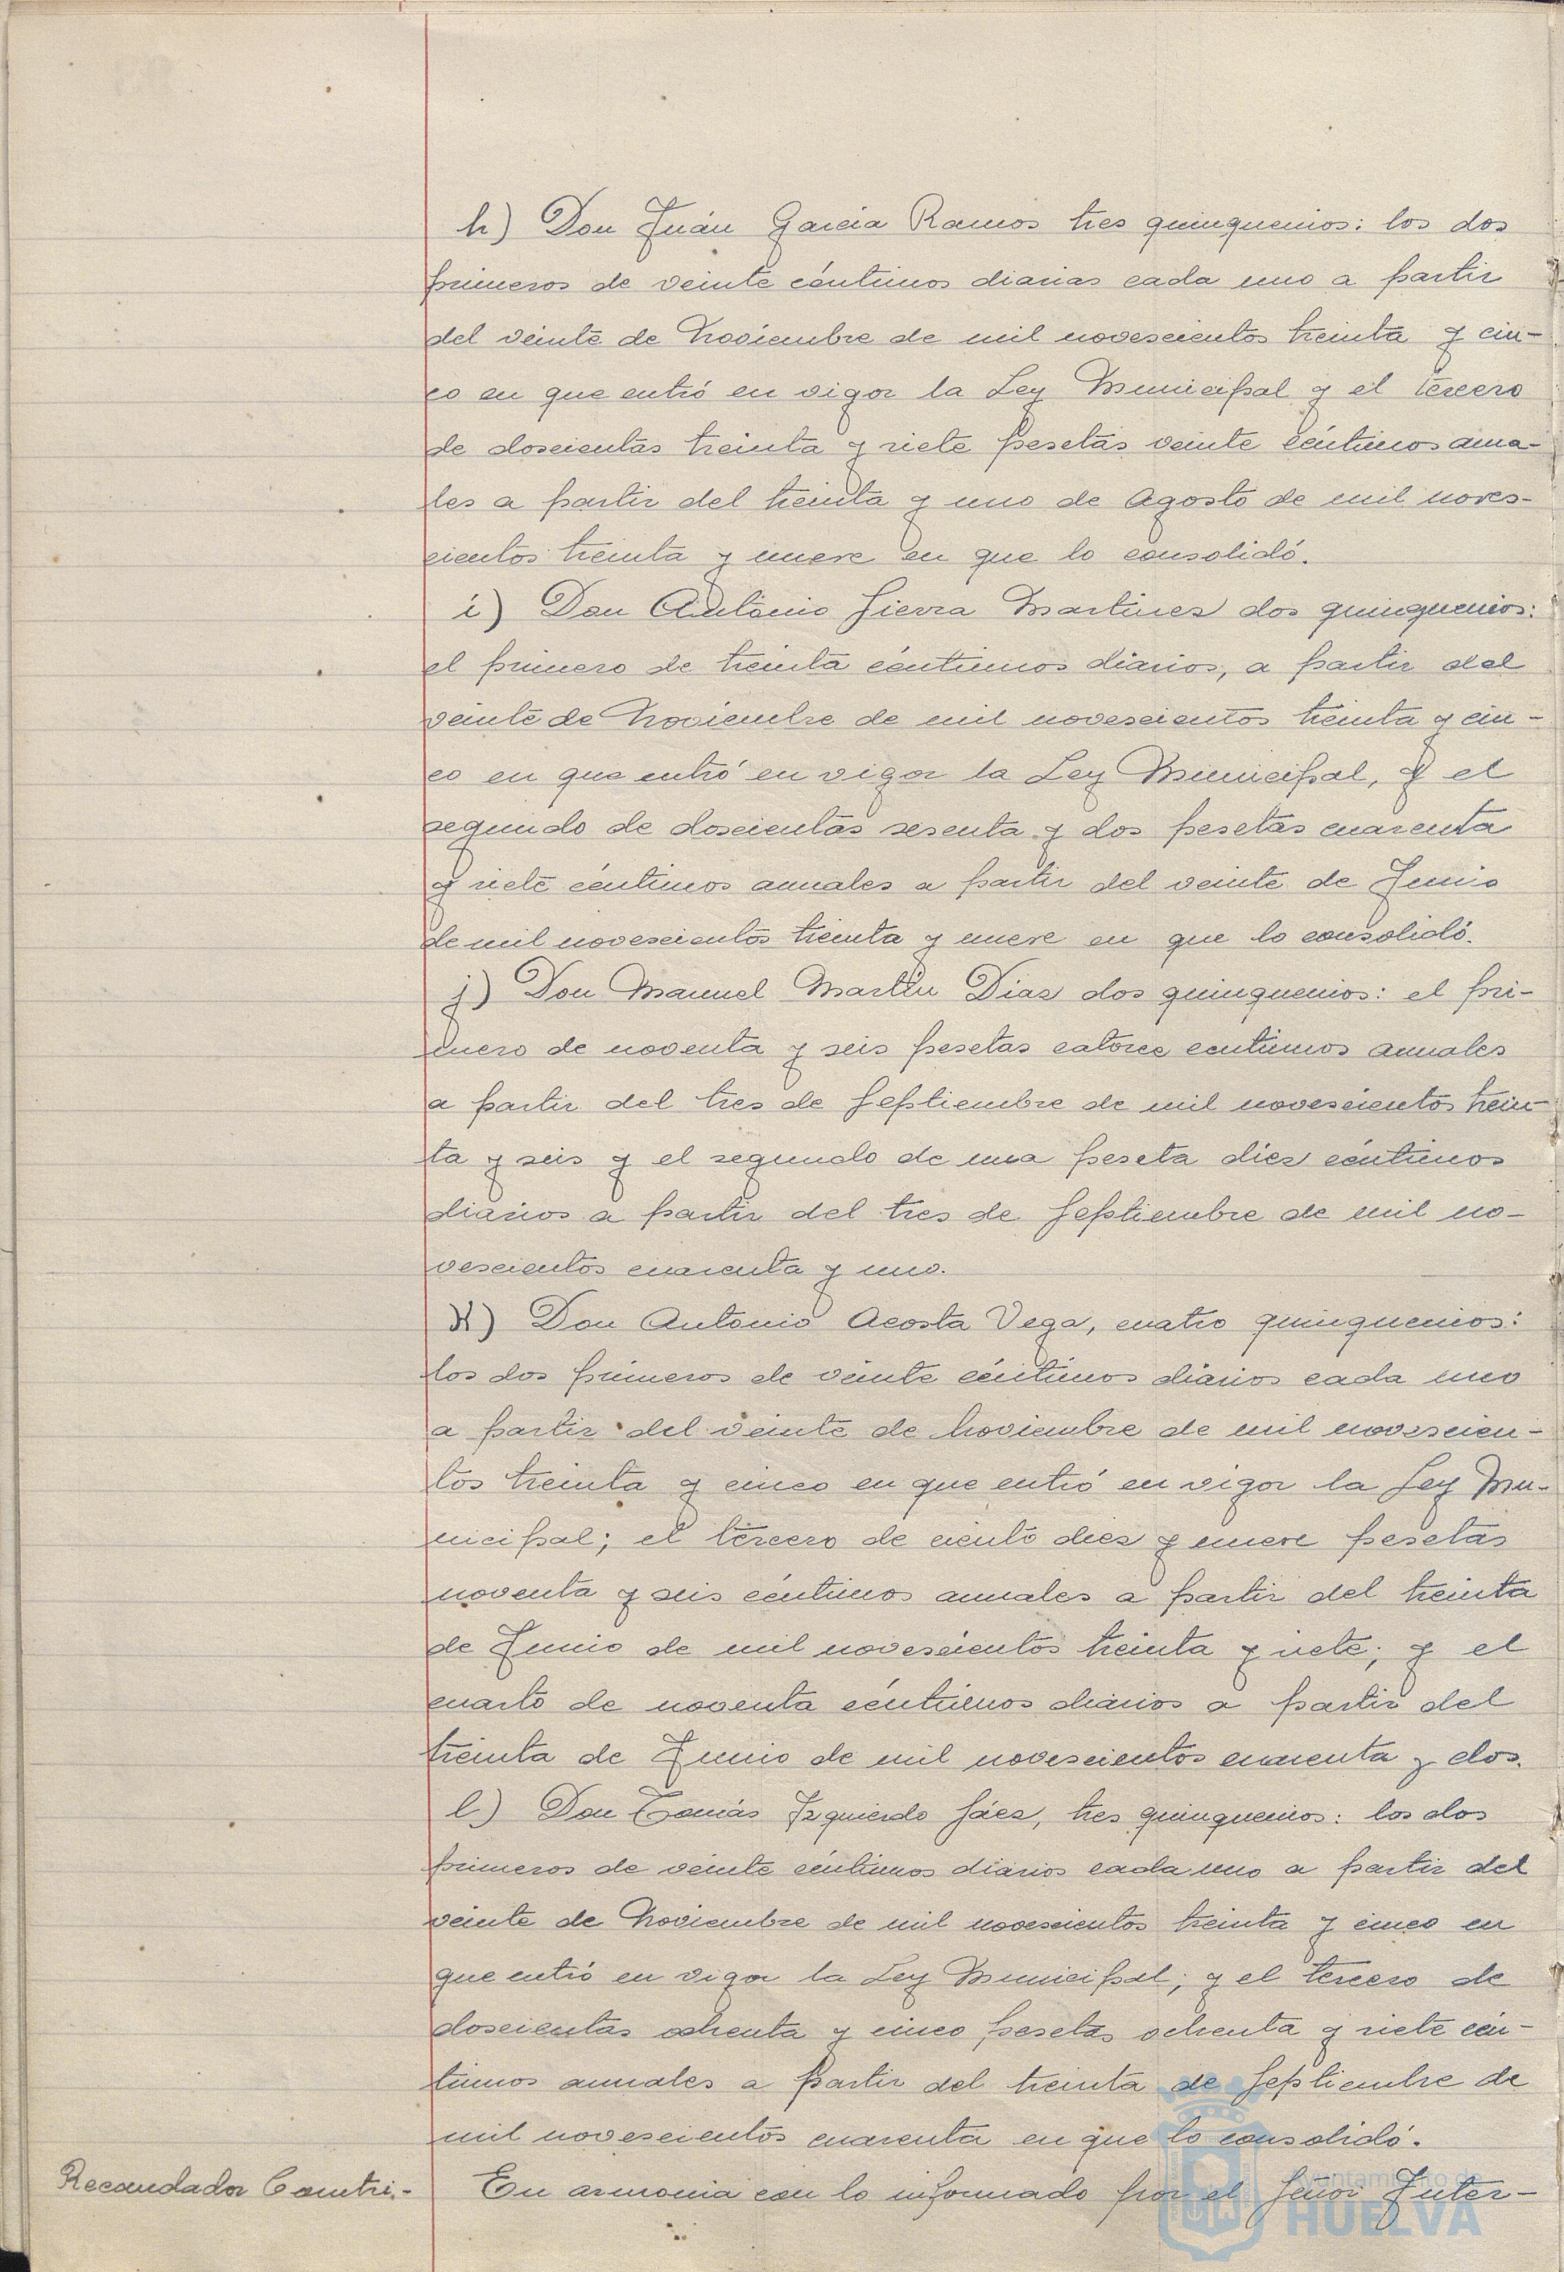 h) Don Juán García Ramos tres quinquenios: los dos
primeros de veinte céntimos diarias cada uno a partir
del veinte de Noviembre de mil novescientos treinta y cin-
co en que entró en vigor la Ley Municipal y el tercero
de doscientas treinta y siete pesetas veinte céntimos anua-
les a partir del treinta y uno de Agosto de mil noves-
cientos treinta y nueve en que lo consolidó.
i) Don Antonio Sierra Martines dos quinquenios:
el primero de treinta céntimos diarios, a partir del
veinte de Noviembre de mil novescientos treinta y cin-
co en que entró en vigor la Ley Municipal, y el
segundo de doscientas sesenta y dos pesetas cuarenta
y siete céntimos anuales a partir del veinte de Junio
de mil novescientos treinta y nueve en que lo consolidó.
j) Don Manuel Martín Dias dos quinquenios: el pri-
mero de noventa y seis pesetas catorce centimos anuales
a partir del tres de Septiembre de mil novescientos trein-
ta y seis y el segundo de una peseta dies céntimos
diarios a partir del tres de Septiembre de mil no-
vescientos cuarenta y uno.
K) Don Antonio Acosta Vega, cuatro quinquenios:
los dos primeros de veinte céntimos diarios cada uno
a partir del veinte de Noviembre de mil novescien-
tos treinta y cinco en que entró en vigor la Ley Mu-
nicipal; el tercero de ciento dies y nueve pesetas
noventa y seis céntimos anuales a partir del treinta
de Junio de mil novescientos treinta y siete; y el
cuarto de noventa céntimos diarios a partir del
treinta de Junio de mil novescientos cuarenta y dos.
l) Don Tomás Izquierdo Sáes, tres quinquenios: los dos
primeros de veinte céntimos diarios cada uno a partir del
veinte de Noviembre de mil novescientos treinta y cinco en
que entró en vigor la Ley Municipal; y el tercero de
doscientas ochenta y cinco pesetas ochenta y siete cén-
timos anuales a partir del treinta de Septiembre de
mil novescientos cuarenta en que lo consolidó.
Recaudador Contri.-
En armonia con lo informado por el Señor Inter-
Ayuntamiento de
HUELVA